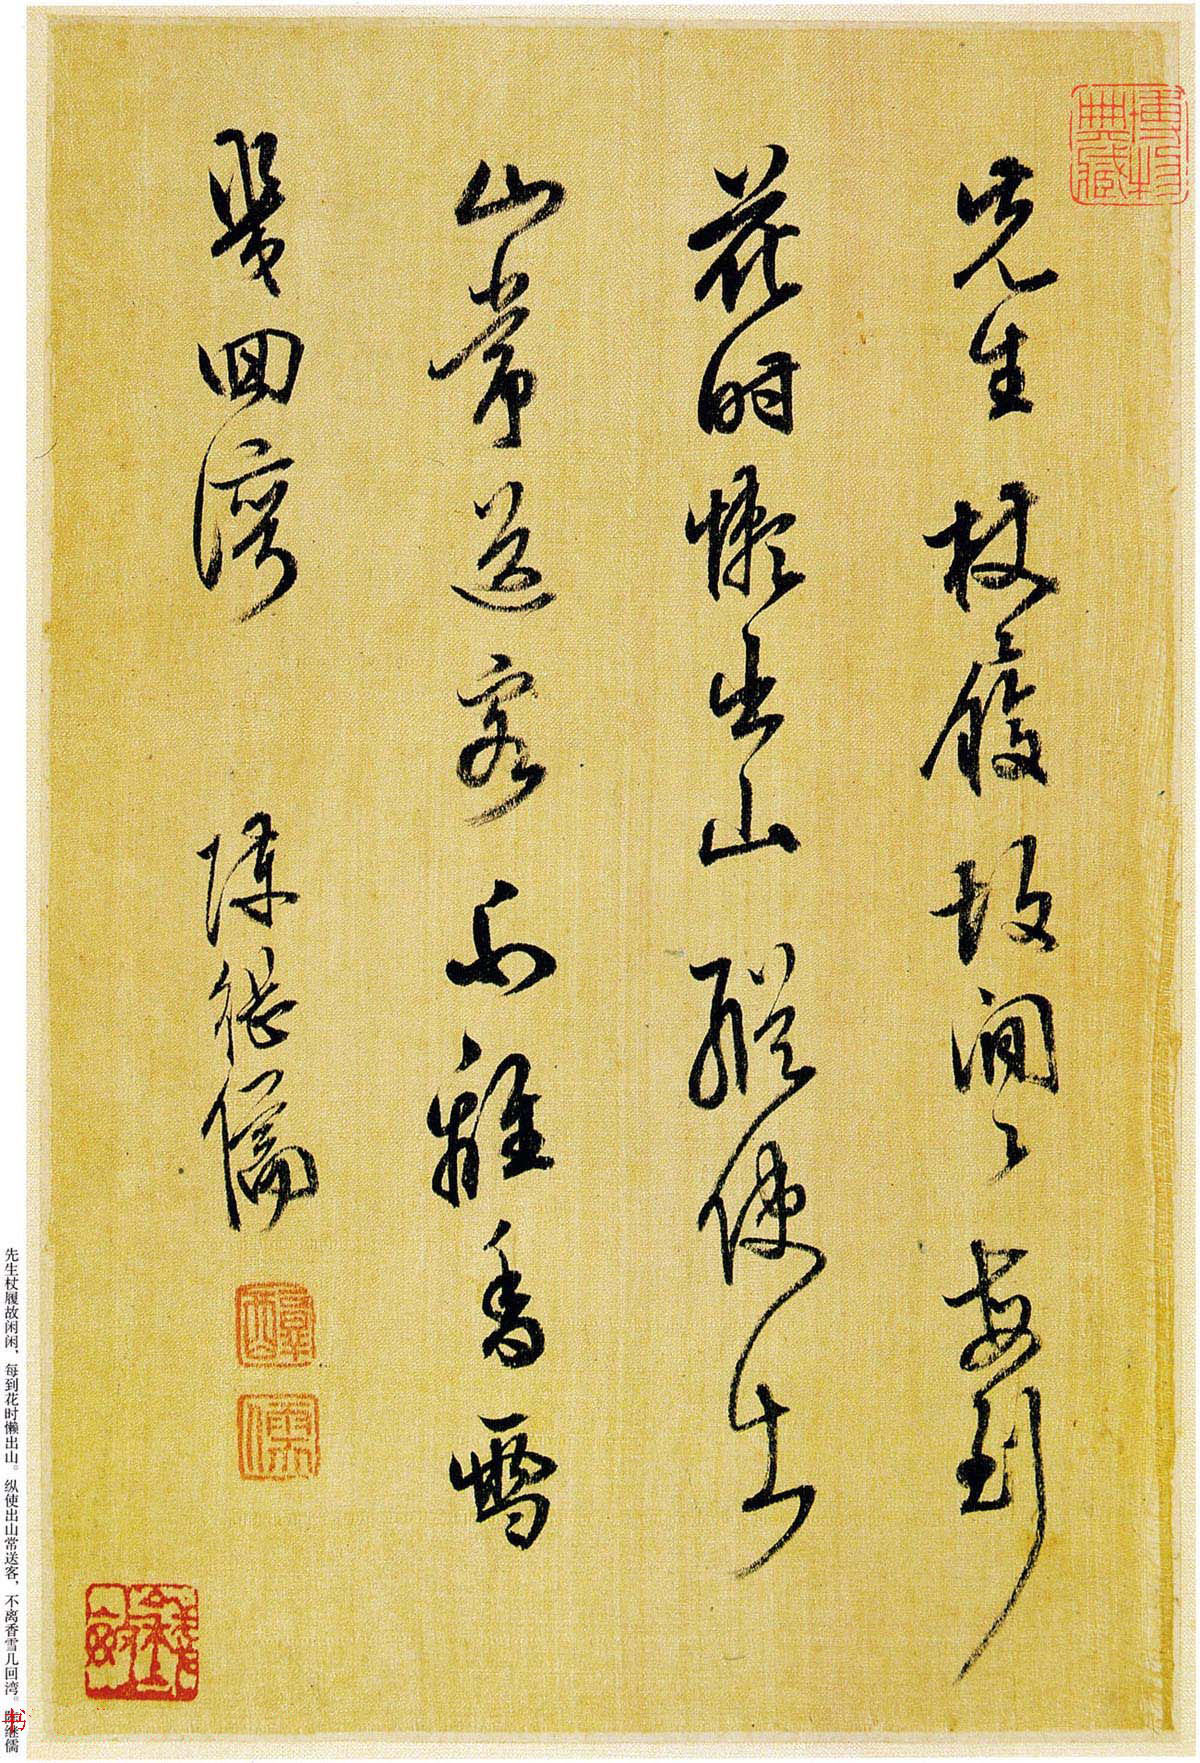 博物典藏
先生杖履故閒〻每到
花時懶出山縱使出
山常送客不離香雪
幾回灣 陳繼儒
醇
儒
先生杖履故闲闲，每到花时懒出山。纵使出山常送客，不离香雪几回湾。陈继儒
书